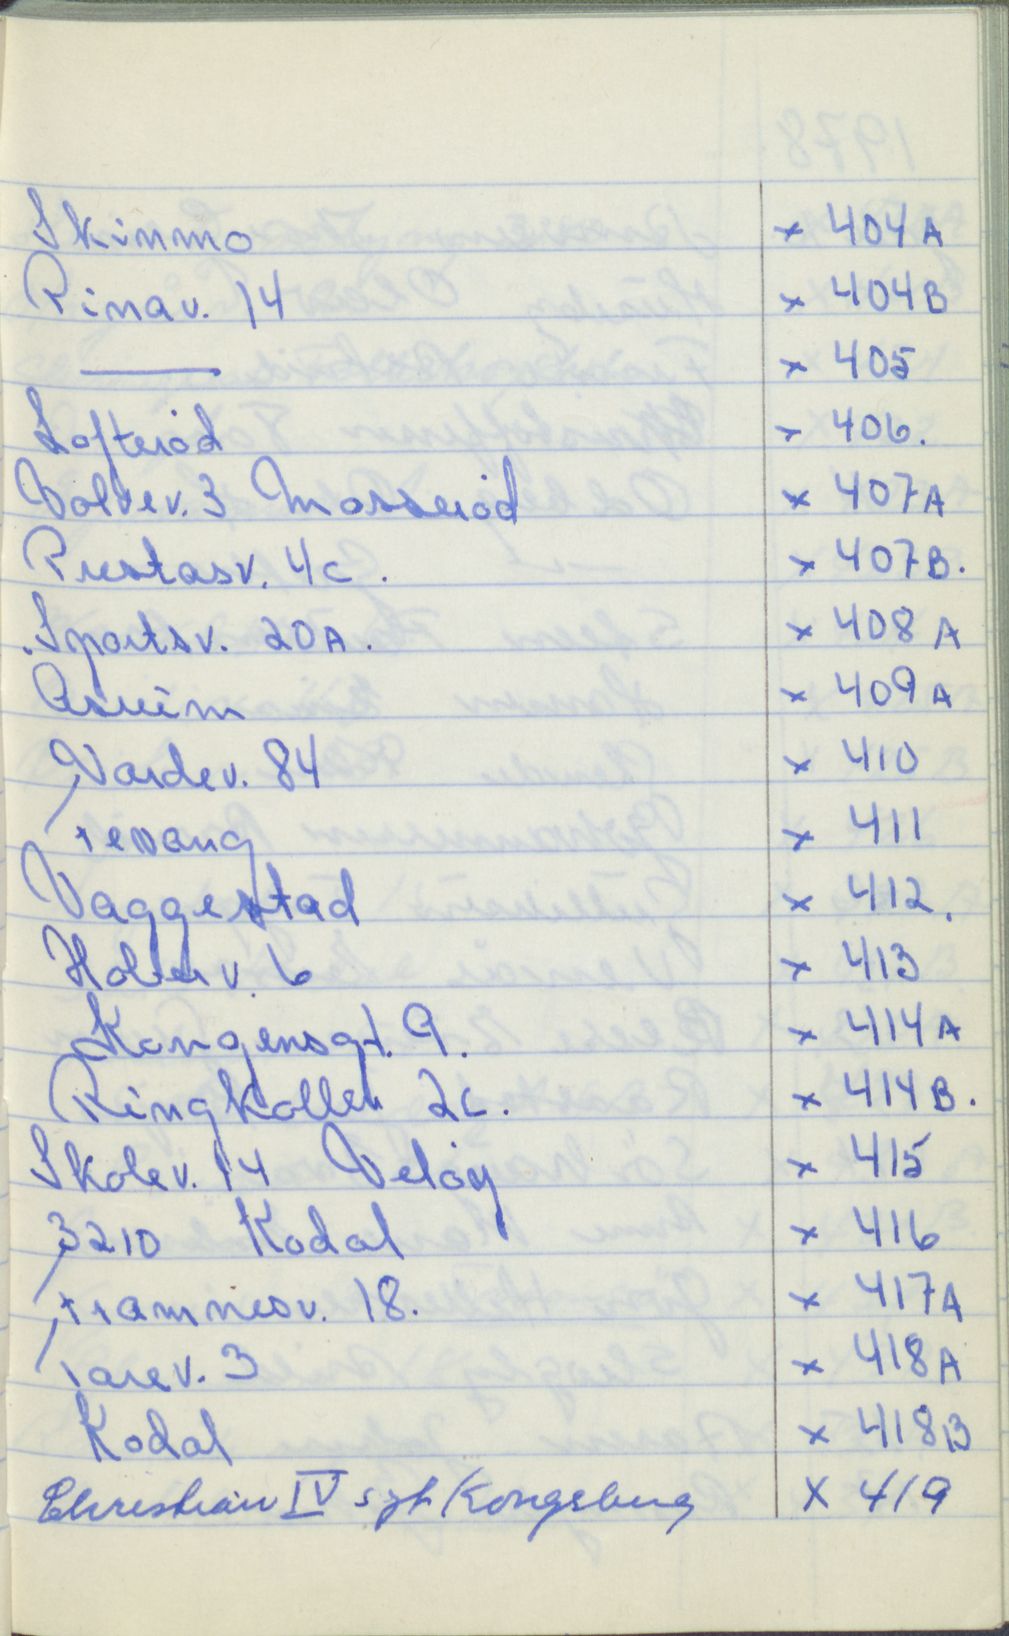 Skinmo x 404A
Rinav. 14 x 404B
—— x 405
Lofterød x 406.
Voltev. 3 Mosserød x 407A
Prestasv. 4c. x 407B.
Sportsv. 20A. x 408 A
Åsheim x 409A
Vardev. 84 x 410
Hevang x 411
Vaggestad x 412.
v. 6 x 413
Kongensgt. 9. x 414A
Ringkollen 2c. x 414B.
Skolev. 14 Veløy x 415
3210 Kodal x 416
Framnesv. 18. x 417A
Tarev. 3 x 418A
Kodal x 418B
Christian IV s gt Kongsberg x 419